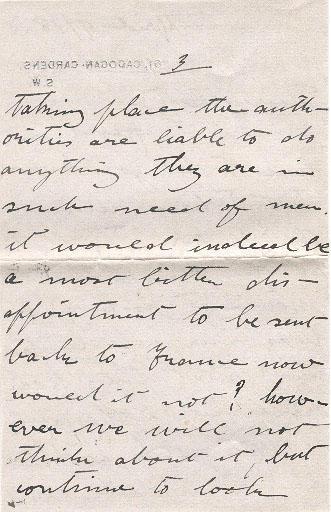 3
61, CADOGAN GARDENS,
S W
taking place the auth-
orities are liable to do
anything they are in
such need of men.
it would indeed be
a most bitter dis-
appointment to be sent
back to France now
would it not? how-
ever we will not
think about it, but
continue to look